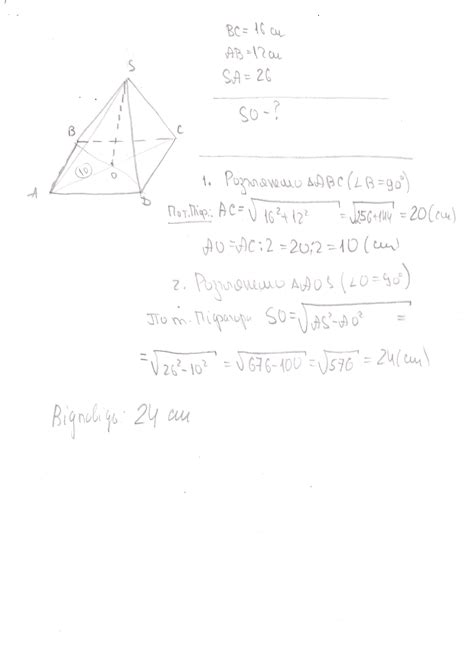 BC = 16 см
AB = 12 см
SA = 26
SO - ?
S
B
C
10
O
A
D
1. Розглянемо ΔABC (∠B = 90°)
По т. Піф.: AC = √16²+12² = √256+144 = 20 (см)
AO = AC : 2 = 20 : 2 = 10 (см)
2. Розглянемо ΔAOS (∠O = 90°)
По т. Піфагора SO = √AS²-AO² =
= √26²-10² = √676-100 = √576 = 24 (см)
Відповідь: 24 см